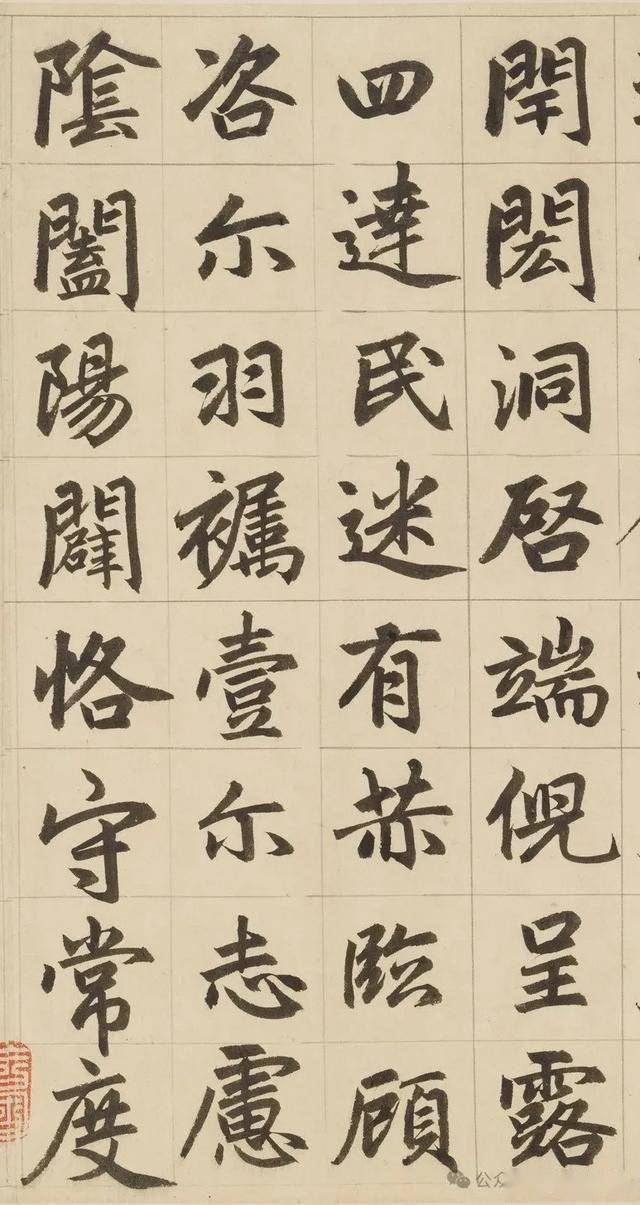 閈閎洞啓端倪呈露
四達民迷有赫臨顧
咨尓羽壹尓志慮
陰闔陽闢恪守常度
公众